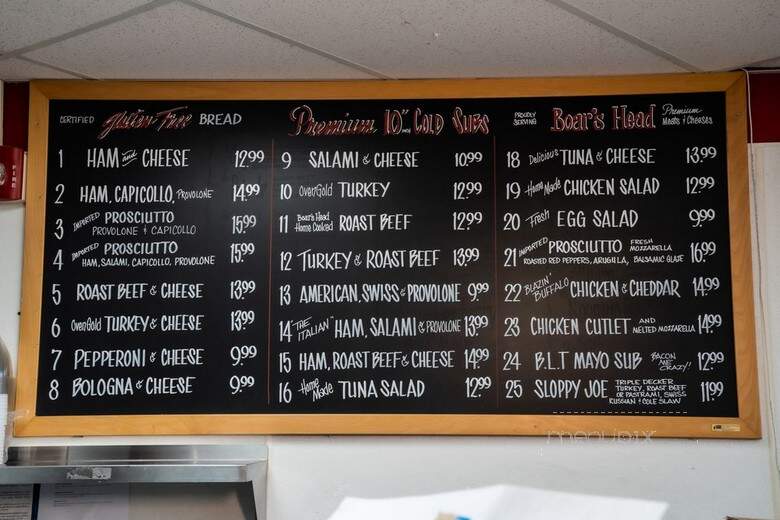 CERTIFIED Gluten Free BREAD
1 HAM and CHEESE 12.99
2 HAM, CAPICOLLO, PROVOLONE 14.99
3 IMPORTED PROSCIUTTO 15.99
PROVOLONE & CAPICOLLO
4 IMPORTED PROSCIUTTO 15.99
HAM, SALAMI, CAPICOLLO, PROVOLONE
5 ROAST BEEF & CHEESE 13.99
6 OvenGold TURKEY & CHEESE 13.99
7 PEPPERONI & CHEESE 9.99
8 BOLOGNA & CHEESE 9.99
Premium 10" COLD SUBS
9 SALAMI & CHEESE 10.99
10 OvenGold TURKEY 12.99
11 Boar's Head Home Cooked ROAST BEEF 12.99
12 TURKEY & ROAST BEEF 13.99
13 AMERICAN, SWISS & PROVOLONE 9.99
14 "THE ITALIAN" HAM, SALAMI & PROVOLONE 13.99
15 HAM, ROAST BEEF & CHEESE 14.99
16 Home Made TUNA SALAD 12.99
PROUDLY SERVING Boar's Head Premium Meats & Cheeses
18 Delicious TUNA & CHEESE 13.99
19 Home Made CHICKEN SALAD 12.99
20 Fresh EGG SALAD 9.99
21 IMPORTED PROSCIUTTO FRESH MOZZARELLA 16.99
ROASTED RED PEPPERS, ARUGULA, BALSAMIC GLAZE
22 BLAZIN' BUFFALO CHICKEN & CHEDDAR 14.99
23 CHICKEN CUTLET AND MELTED MOZZARELLA 14.99
24 B.L.T MAYO SUB BACON ME CRAZY!! 12.99
25 SLOPPY JOE TRIPLE DECKER 11.99
TURKEY, ROAST BEEF
OR PASTRAMI, SWISS
RUSSIAN & COLE SLAW
menupix
FIRE